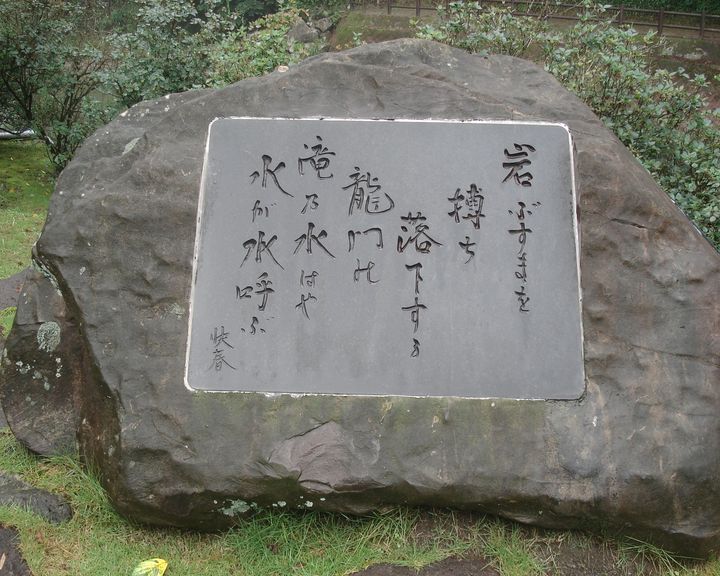 岩ぶすまを
搏ち
落下する
龍門の
滝乃水はや
水が水呼ぶ
快春